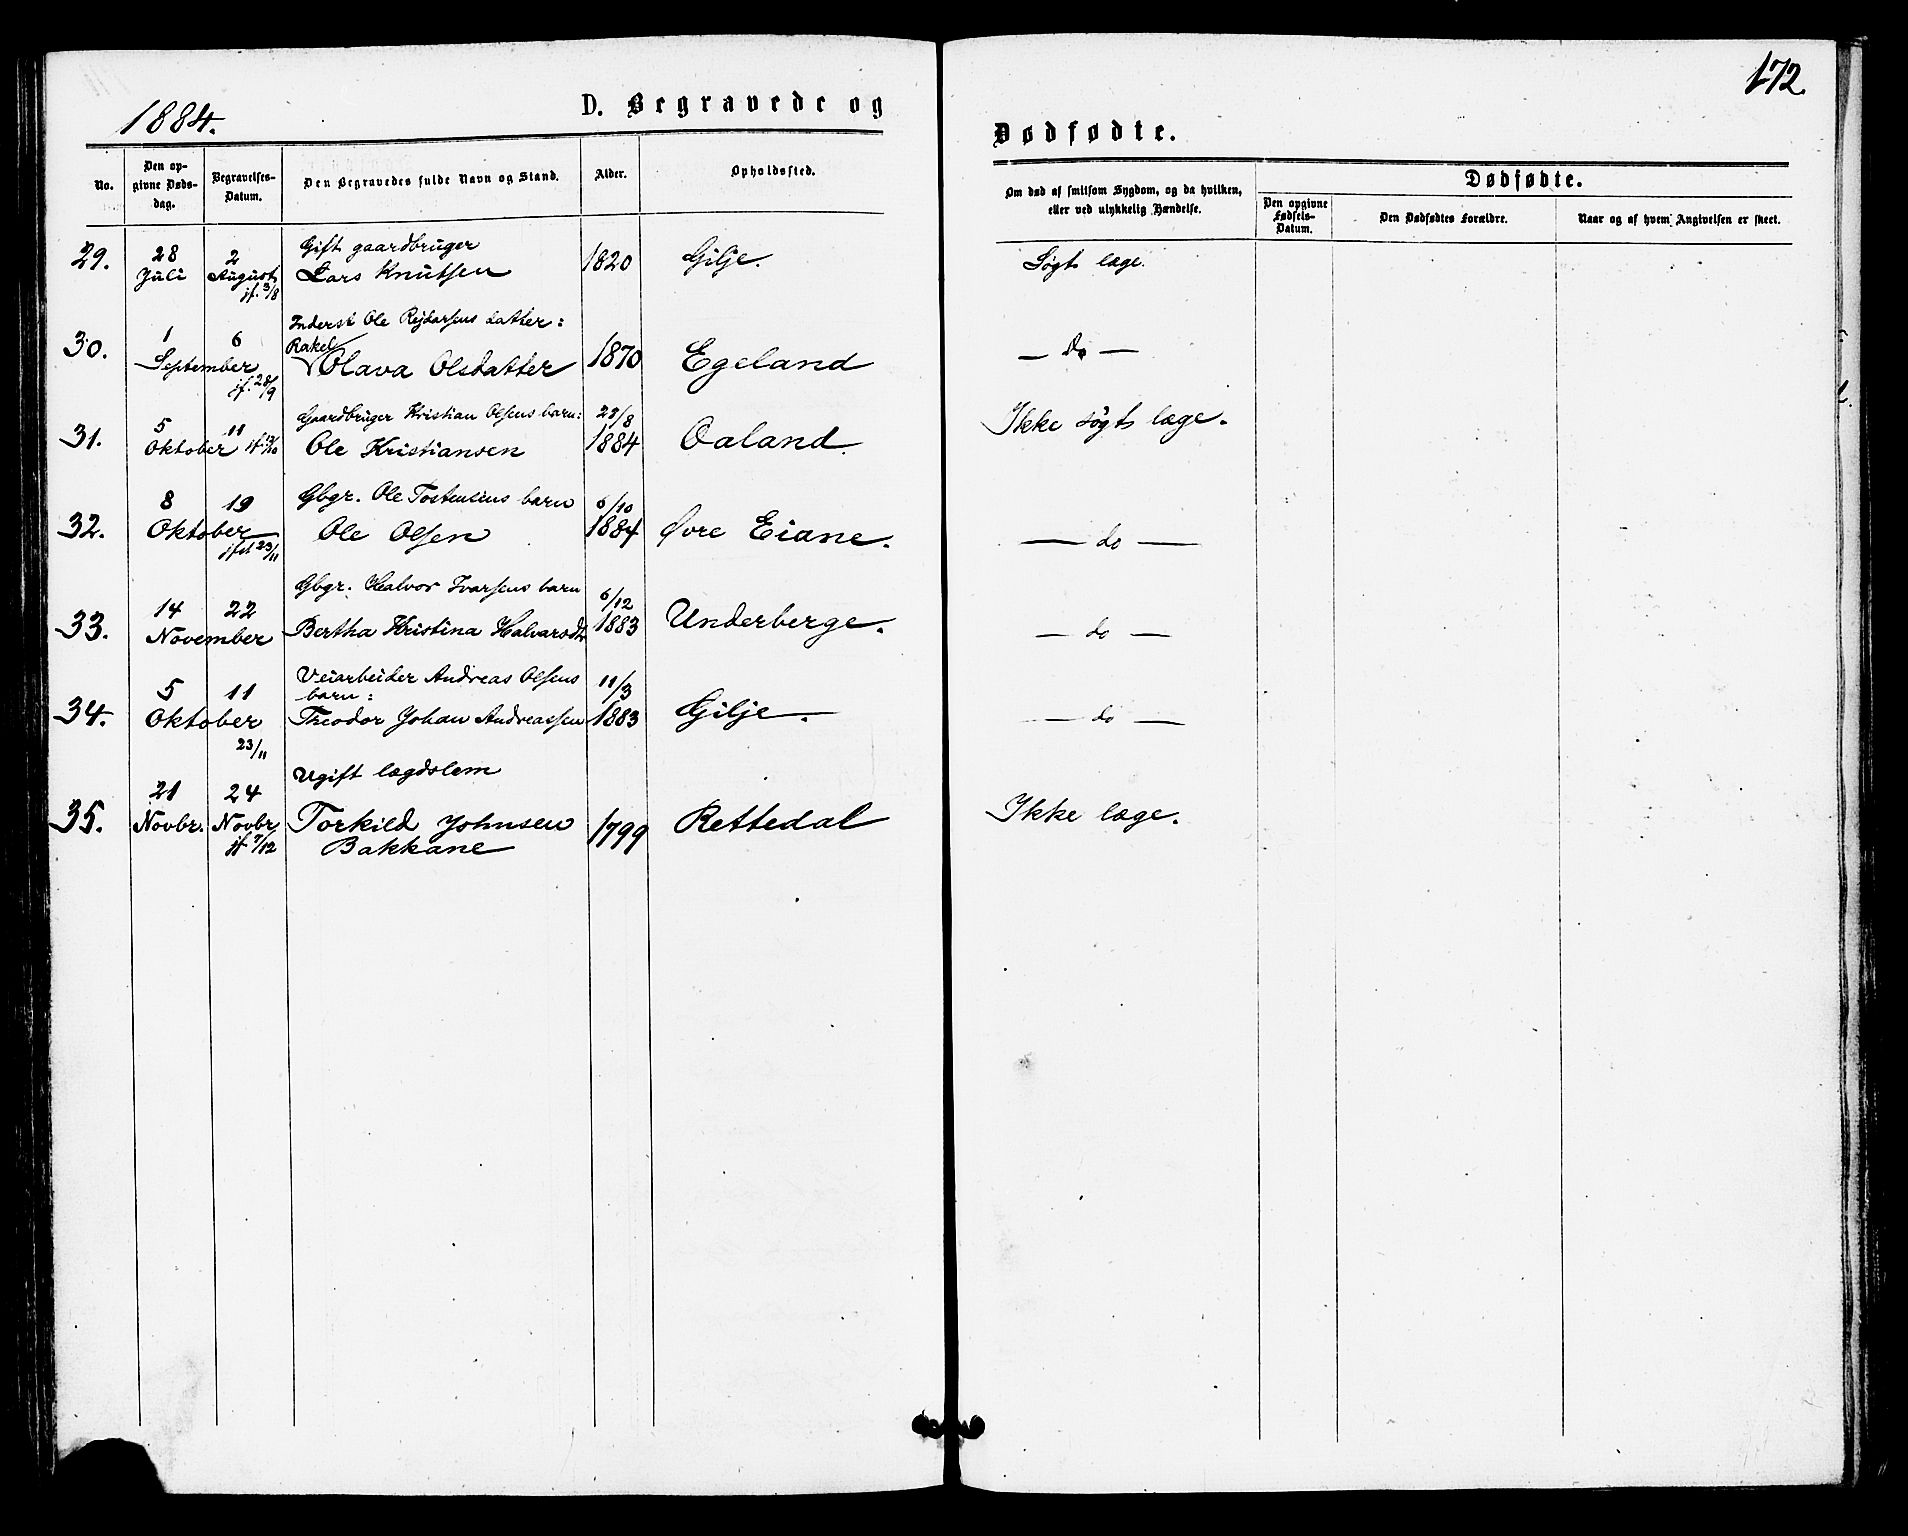 1884.
D. Begravede og
Dødfødte.
172.
No.
Den opgivne Dødsdag.
Begravelses-Datum.
Den Begravedes fulde Navn og Stand.
Alder.
Opholdssted.
Om død af smitsom Sygdom, og da hvilken,
eller ved ulykkelig Hændelse.
Dødfødte.
Den opgivne Fødsels-Datum.
Den Dødfødtes Forældre.
Naar og af hvem Angivelsen er skeet.
29.
28 Juli
2 August
jf. 3/8
Gift gaardbruger
Lars Knutsen
1820
Gilje.
Søgt læge.
30.
1
6
September
jf. 28/9
Inderst Ole Rejdarsens datter:
Rakel
Olava Olsdatter
1870
Egeland
— do —
31.
5
11
Oktober
Gaardbruger Kristian Olsens barn:
Ole Kristiansen
1884
Oaland
Ikke søgt læge.
32.
8
19
Oktober
jfst 23/11
Gbgr. Ole Tostensens barn
Ole Olsen
6/10
1884
Øvre Eiane.
— do —
33.
14
22
November
Gbgr. Halvor Ivarsens barn
Bertha Kristina Halvarsdtr
6/12
1883
Underberge.
— do —
34.
5
11
Oktober
23/11
Veiarbeider Andreas Olsens
barn:
Theodor Johan Andreassen
11/3
1883
Gilje.
— do —
35.
21
24
Novbr.
Novbr
jf 7/12
Ugift lægdslem
Torkild Johnsen
Bakkane
1799
Rettedal
Ikke læge.